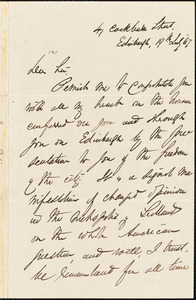 47 Cockburn Street,
Edinburgh, 19th July 67
Dear Sir
Permit me to congratulate you
with all my heart on the honor
conferred on you and through
you on Edinburgh by the pre
sentation to you of the freedom
of the city. It is a signal ma
nifestation of changed opinion
in the Metropolis of Scotland
on the whole American
question, and will, I trust,
be remembered for all time